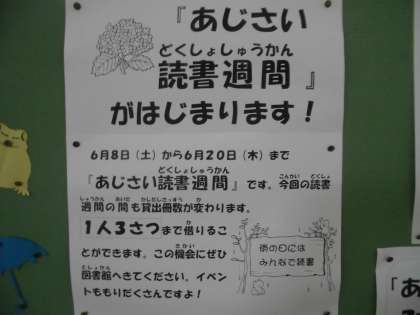 『あじさい
読書週間』
がはじまります！
6月8日（土）から6月20日（木）まで
『あじさい読書週間』です。今回の読書
週間の間も貸出冊数が変わります。
1人3さつまで借りるこ
とができます。この機会にぜひ
図書館へきてください。イベン
トももりだくさんですよ！
雨の日には
みんなで読書
『あ